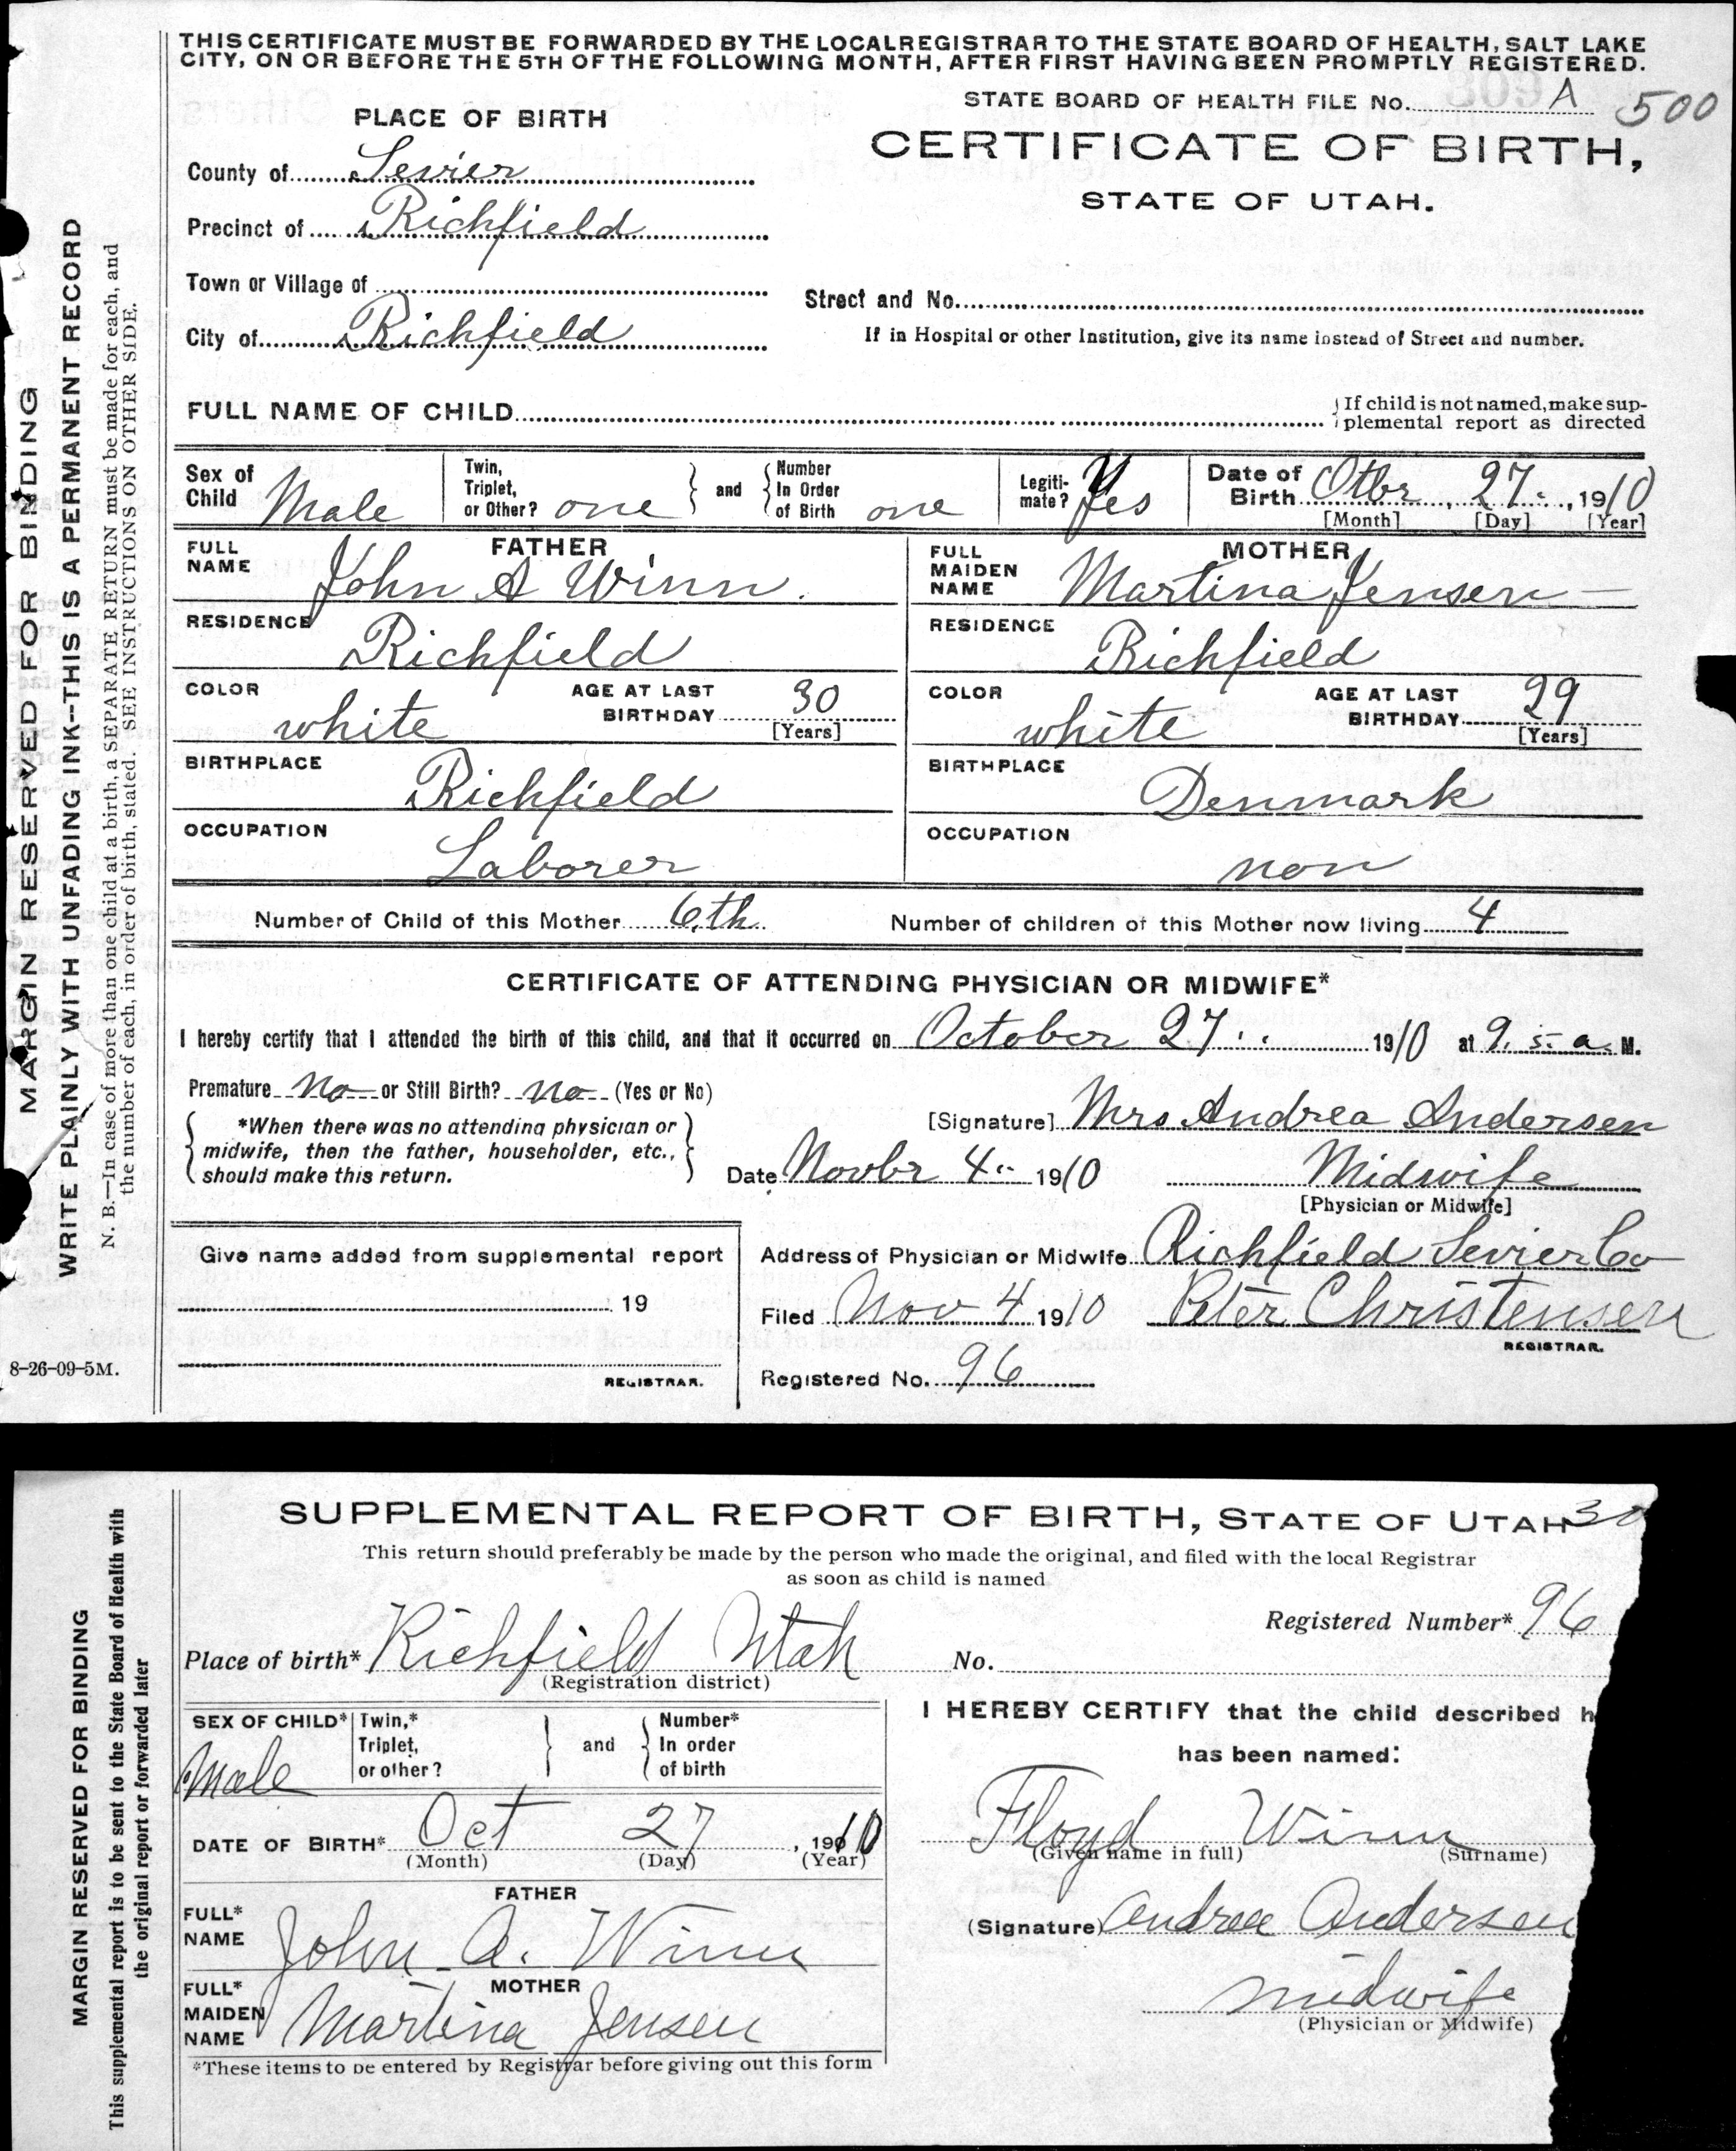 THIS CERTIFICATE MUST BE FORWARDED BY THE LOCAL REGISTRAR TO THE STATE BOARD OF HEALTH, SALT LAKE
CITY, ON OR BEFORE THE 5TH OF THE FOLLOWING MONTH, AFTER FIRST HAVING BEEN PROMPTLY REGISTERED.
STATE BOARD OF HEALTH FILE No. A 500
PLACE OF BIRTH
CERTIFICATE OF BIRTH,
STATE OF UTAH.
County of Sevier
Precinct of Richfield
Town or Village of
Street and No.
City of Richfield
If in Hospital or other Institution, give its name instead of Street and number.
FULL NAME OF CHILD
If child is not named, make sup-
plemental report as directed
Sex of
Child Male
Twin,
Triplet,
or Other? one
and
Number
In Order
of Birth one
Legiti-
mate? Yes
Date of
Birth Otbr, 27., 1910
[Month] [Day] [Year]
FATHER
FULL
NAME John A Winn.
RESIDENCE
Richfield
COLOR white
AGE AT LAST
BIRTHDAY 30
[Years]
BIRTHPLACE
Richfield
OCCUPATION
Laborer
MOTHER
FULL
MAIDEN
NAME Martina Jensen
RESIDENCE
Richfield
COLOR white
AGE AT LAST
BIRTHDAY 29
[Years]
BIRTHPLACE
Denmark
OCCUPATION
non
Number of Child of this Mother 6.th Number of children of this Mother now living 4
CERTIFICATE OF ATTENDING PHYSICIAN OR MIDWIFE*
I hereby certify that I attended the birth of this child, and that it occurred on October 27 1910 at 9. 5- a. M.
Premature No or Still Birth? No (Yes or No)
*When there was no attending physician or
midwife, then the father, householder, etc.,
should make this return.
[Signature] Mrs Andrea Andersen
Date Novbr 4 1910 Midwife
[Physician or Midwife]
Give name added from supplemental report
19
REGISTRAR.
Address of Physician or Midwife Richfield Sevier Co
Filed Nov 4 1910 Peter Christensen
REGISTRAR.
Registered No. 96
MARGIN RESERVED FOR BINDING
WRITE PLAINLY WITH UNFADING INK--THIS IS A PERMANENT RECORD
N. B.—In case of more than one child at a birth, a SEPARATE RETURN must be made for each, and
the number of each, in order of birth, stated. SEE INSTRUCTIONS ON OTHER SIDE.
8-26-09-5M.
SUPPLEMENTAL REPORT OF BIRTH, STATE OF UTAH
This return should preferably be made by the person who made the original, and filed with the local Registrar
as soon as child is named
Registered Number* 96
Place of birth* Richfield Utah No.
(Registration district)
SEX OF CHILD*
Male
Twin,*
Triplet,
or other?
and
Number*
In order
of birth
DATE OF BIRTH* Oct 27, 1910
(Month) (Day) (Year)
FATHER
FULL*
NAME John A. Winn
MOTHER
FULL*
MAIDEN
NAME Martina Jensen
*These items to be entered by Registrar before giving out this form
I HEREBY CERTIFY that the child described h
has been named:
Floyd Winn
(Given name in full) (Surname)
(Signature) Andrea Andersen
midwife
(Physician or Midwife)
MARGIN RESERVED FOR BINDING
This supplemental report is to be sent to the State Board of Health with
the original report or forwarded later